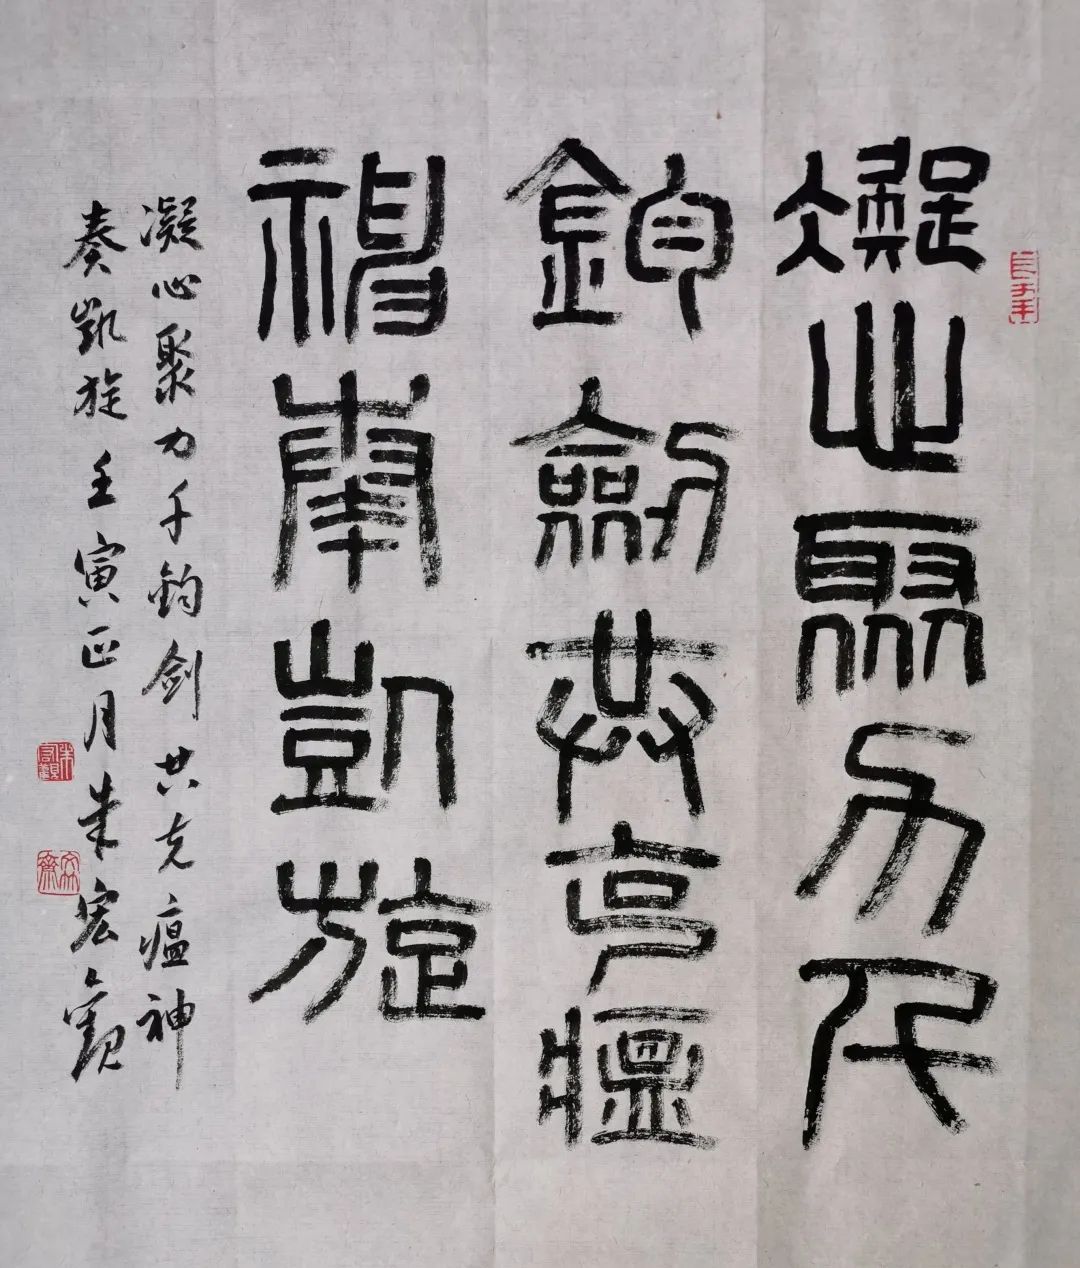 凝心聚力千
鈞劍共克瘟
神奏凱旋
凝心聚力千钧剑共克瘟神
奏凯旋壬寅正月朱宏观